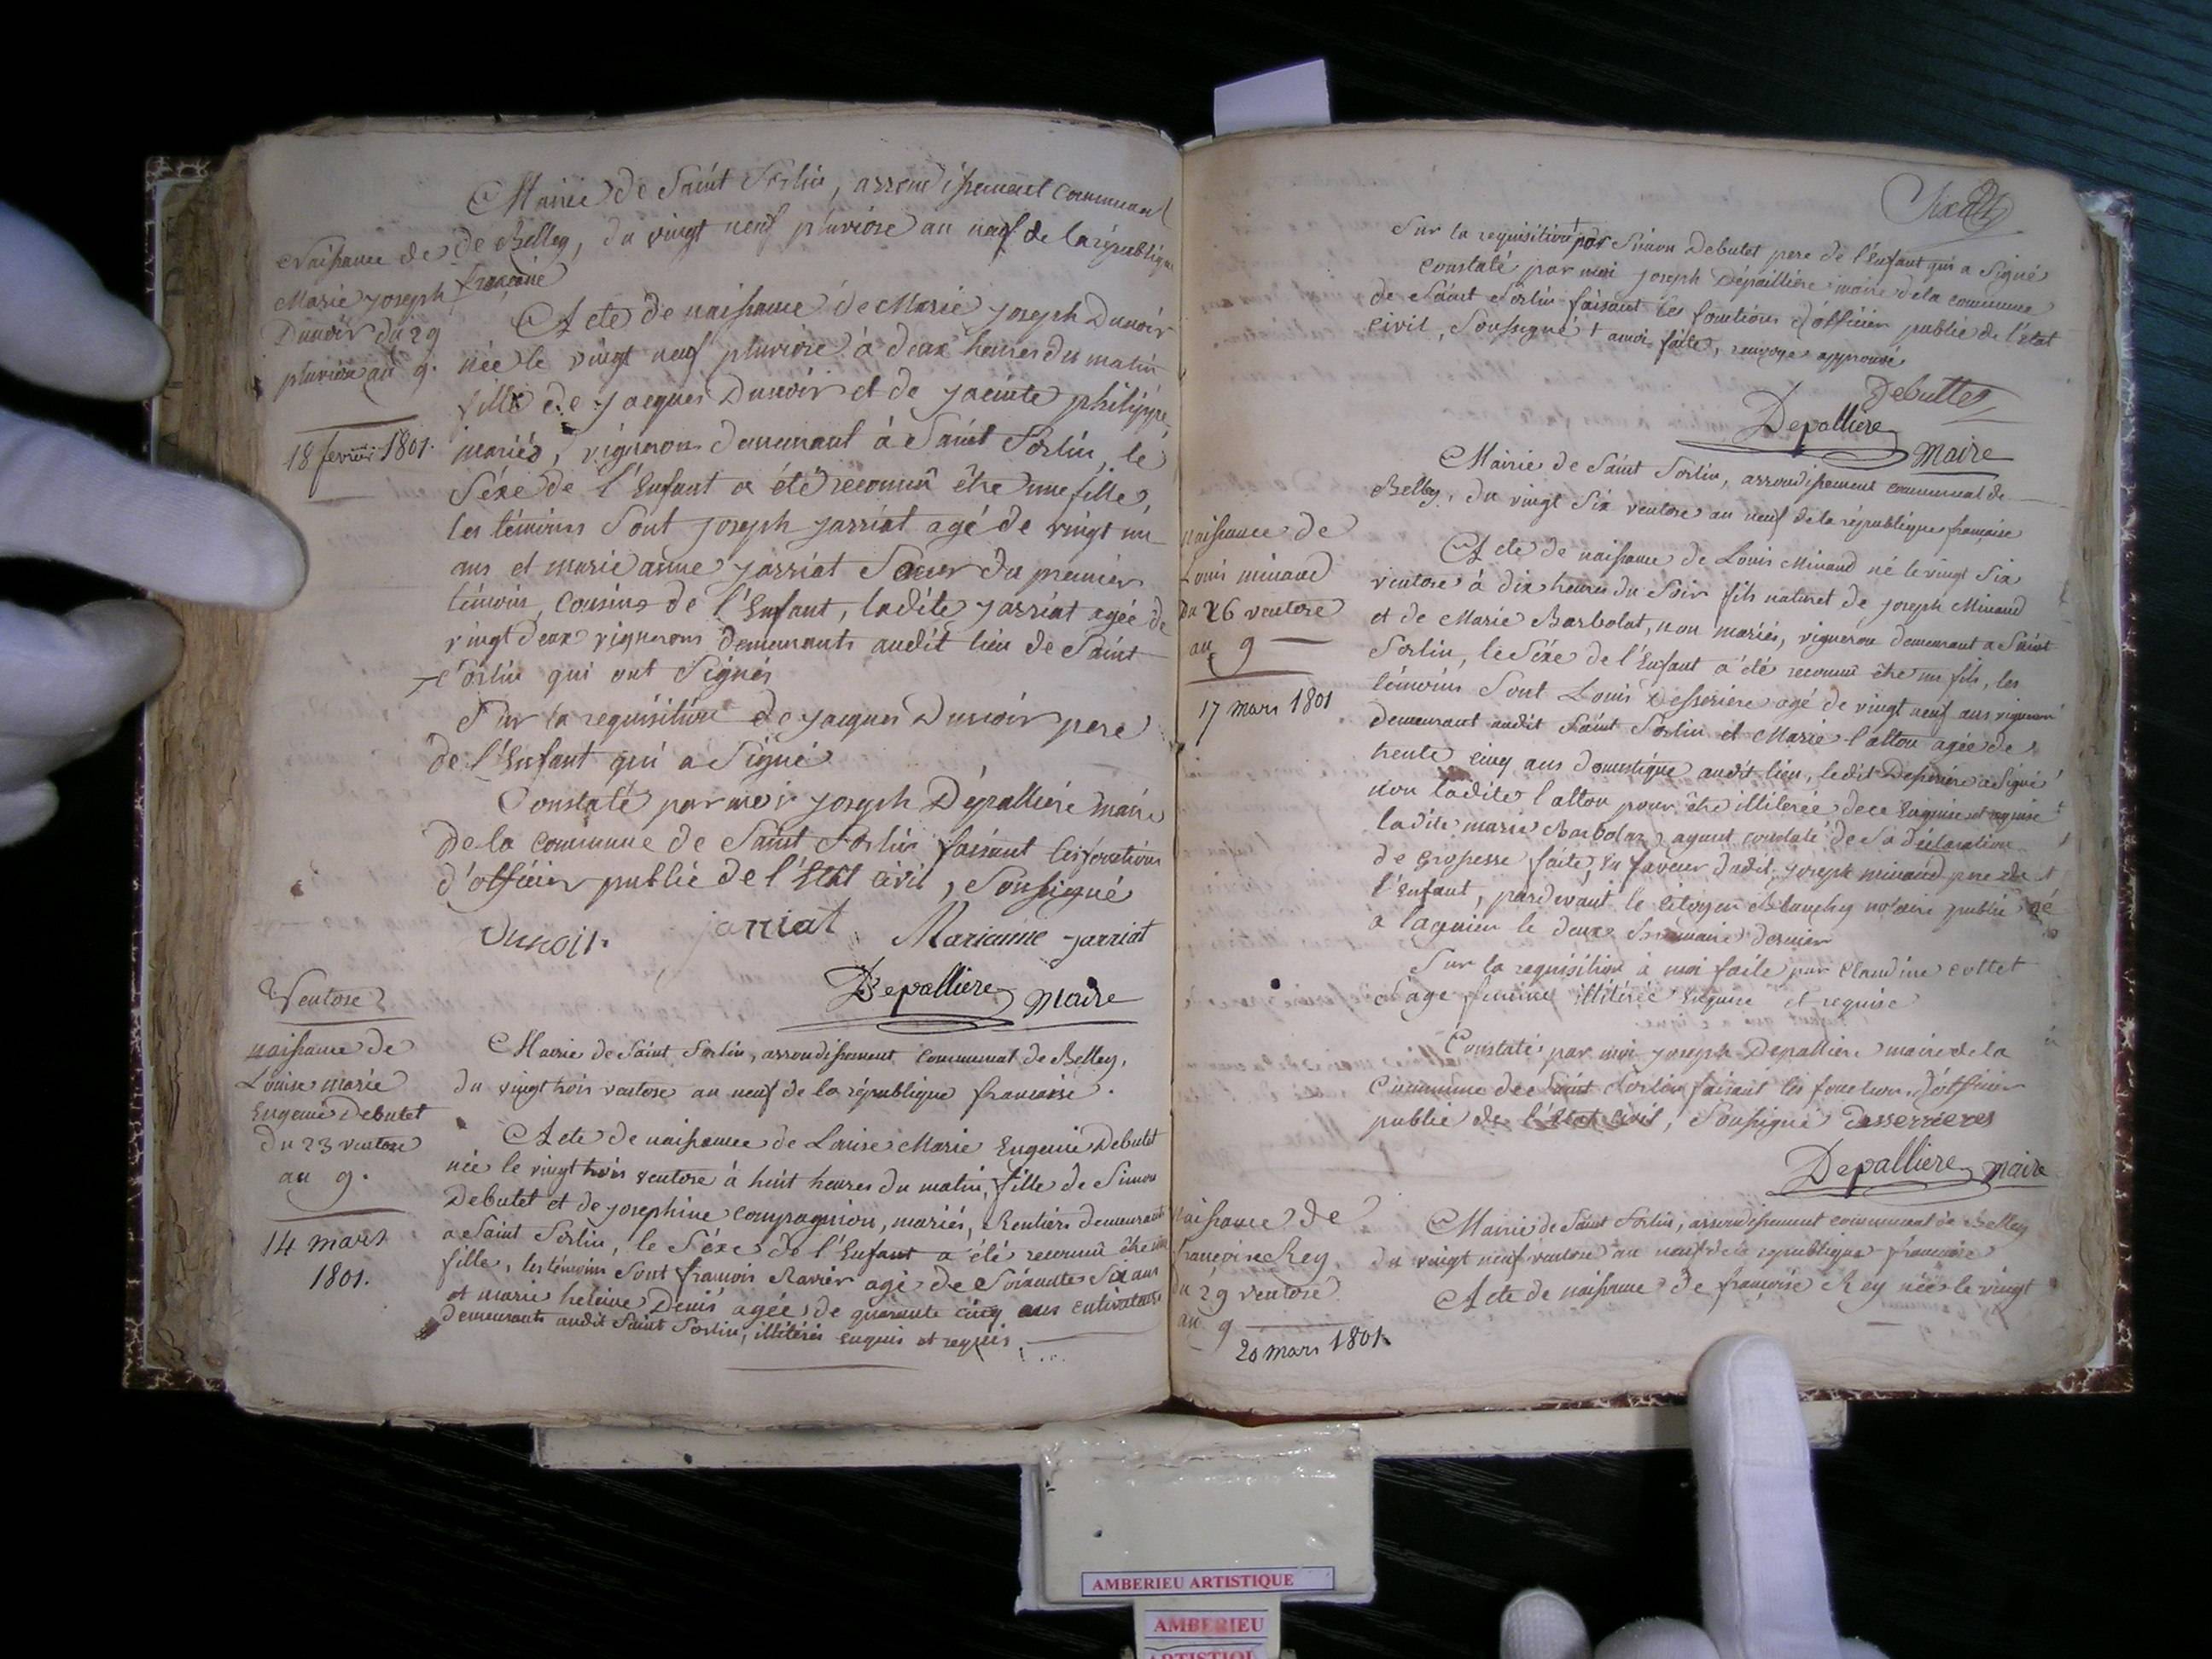 Mairie de Saint Sorlin, arrondissement communal
de Belley, du vingt neuf pluviose an neuf de la république
francaise
Naissance de
Marie joseph
Dunoir du 29
pluviose an 9.
18 fevrier 1801.
Acte de naissance de Marie joseph Dunoir
née le vingt neuf pluviose à deux heures du matin
fille de jacques Dunoir et de jacinte philippe
mariés, vignerons demeurant à Saint Sorlin, le
Séxe de l'Enfant a été reconnû être une fille,
les témoins Sont joseph jarriat agé de vingt un
ans et marie anne jarriat Soeur du premier
témoin, cousins de l'Enfant, ladite jarriat agée de
vingt deux vignerons demeurants audit lieu de Saint
Sorlin qui ont Signés
Sur la requisition de jacques Dunoir pere
de l'Enfant qui a Signé
Constaté par moi joseph Dépalliere maire
de la commune de Saint Sorlin faisant les fonctions
d'officier public de l'Etat civil, Soussigné
Dunoir. jarriat Marianne jarriat
Depalliere maire
Ventose
naissance de
Louise marie
Eugenie Debutet
du 23 ventose
an 9.
14 mars
1801.
Mairie de Saint Sorlin, arrondissement communal de Belley,
du vingt trois ventose an neuf de la république francaise.
Acte de naissance de Louise Marie Eugenie Debutet
née le vingt trois ventose à huit heures du matin, fille de Simon
Debutet et de josephine compagnion, mariés, Rentiers demeurants
a Saint Sorlin, le Séxe de l'Enfant a été reconnû être une
fille, les témoins Sont francois Ravier agé de Soixante Six ans
et marie heleine Denis agée de quarante cinq ans cultivateurs
demeurants audit Saint Sorlin, illitérés enquis et requis
Sur la requisition + par Simon Debutet pere de l'Enfant qui a Signé
Constaté par moi joseph Dépalliere maire de la commune
de Saint Sorlin faisant les fonctions d'officier public de l'état
civil, Soussigné + amoi faite, renvoye approuvé
Debuttet
Depalliere
Maire
Mairie de Saint Sorlin, arrondissement communal de
Belley, du vingt Six ventose an neuf de la république francaise
naissance de
Louis minaud
du 26 ventose
an 9
17 mars 1801
Acte de naissance de Louis Minaud né le vingt Six
ventose à dix heures du Soir fils naturel de joseph Minaud
et de Marie Barbolat, non mariés, vigneron demeurant a Saint
Sorlin, le Séxe de l'Enfant a été reconnû être un fils, les
témoins Sont Louis Desseriere agé de vingt neuf ans vigneron
demeurant audit Saint Sorlin et Marie l'allou agée de
trente cinq ans domestique audit lieu, ledit Desseriere a Signé
non ladite l'allou pour être illiterée de ce Enquise et requise
ladite marie Barbolat ayant constaté de Sa déclaration
de grossesse faite, en faveur dudit joseph minaud pere de
l'Enfant, pardevant le citoyen Blanchy notaire public
a lagnieu le deux dernier
Sur la requisition à moi faite par Claudine cottet
Sage femme illitérée Enquise et requise
Constaté par moi joseph Depalliere maire de la
Commune de Saint Sorlin faisant les fonctions d'officier
public de l'état civil, Soussigné Desserrieres
Depalliere maire
Naissance de
francoise Rey
du 29 ventose
an 9
20 mars 1801
Mairie de Saint Sorlin, arrondissement communal de Belley
du vingt neuf ventose an neuf de la republique francaise
Acte de naissance de francoise Rey née le vingt
AMBERIEU ARTISTIQUE
AMBERIEU
ARTISTIQUE